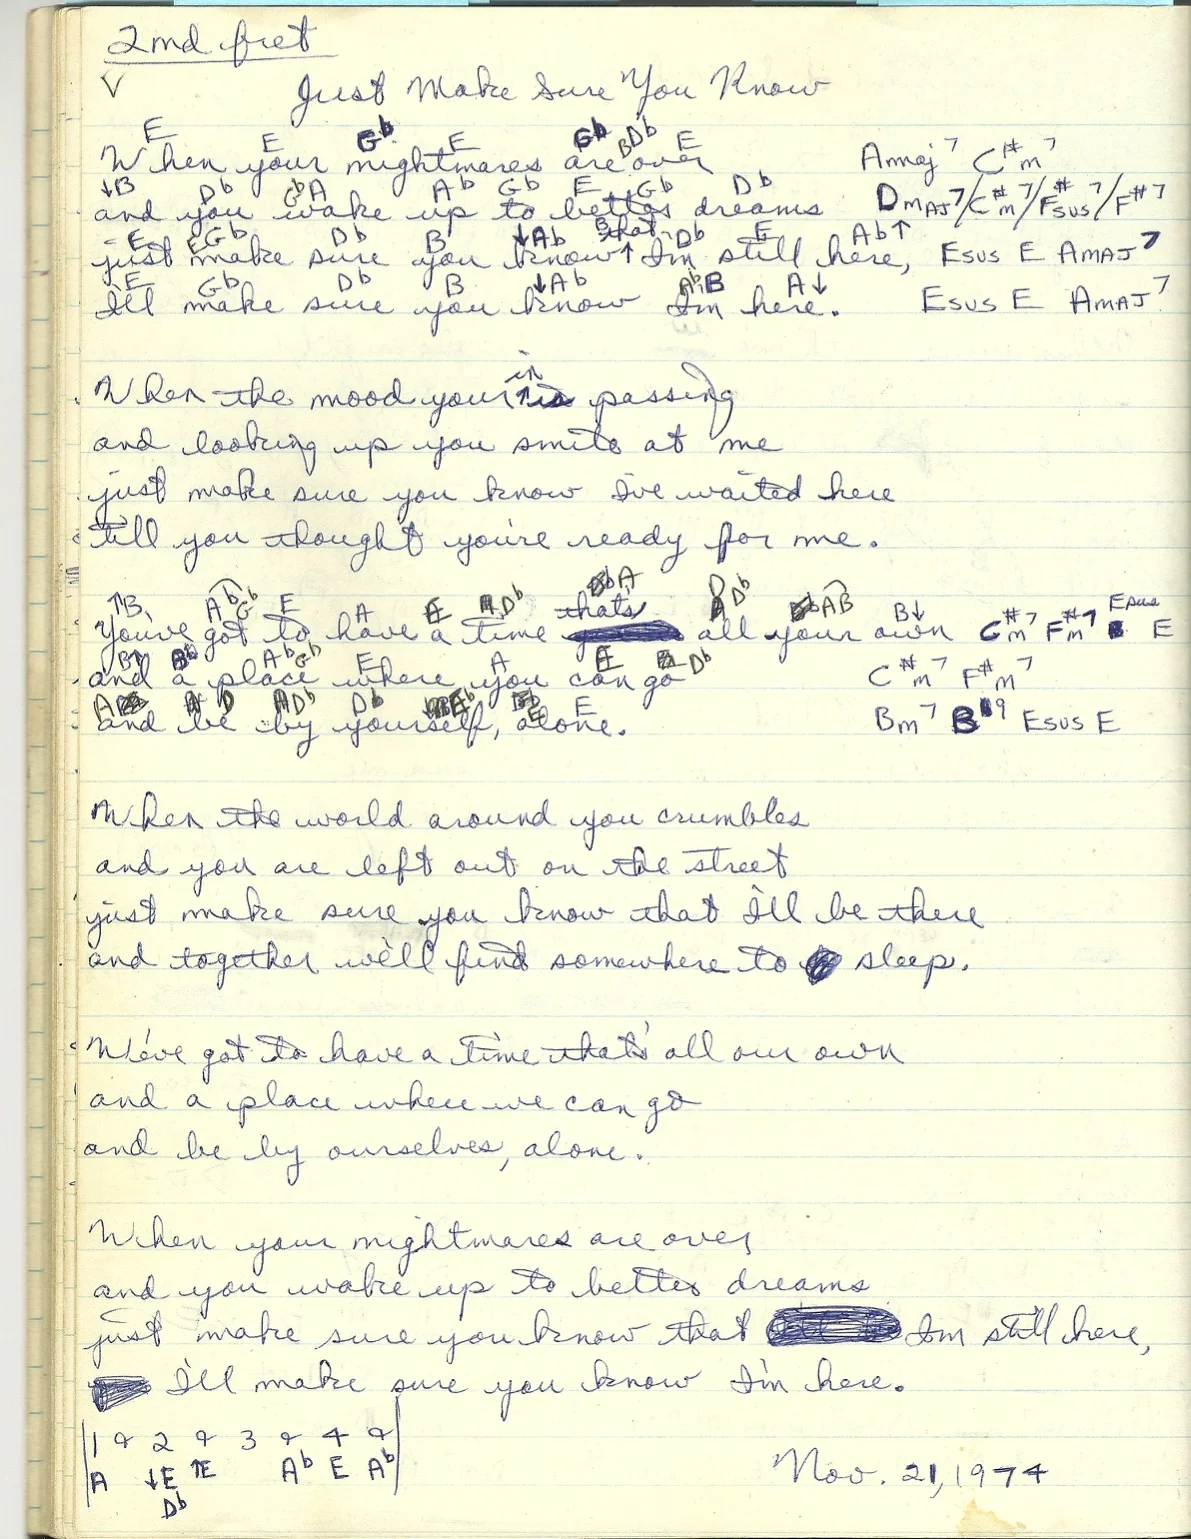 2nd fret
V
Just Make Sure You Know
E E Gb E Gb B Db E
When your nightmares are over Amaj7 C#m7
↓B Db Gb A Ab Gb E Gb Db
and you wake up to better dreams Dmaj7/C#m7/F#sus7/F#7
E E Gb Db B ↓Ab B Db E Ab↑
that
just make sure you know ↑ I'm still here, Esus E Amaj7
E Gb Db B ↓Ab Ab B A↓
I'll make sure you know I'm here. Esus E Amaj7
in
When the mood your ↑ passing
and looking up you smile at me
just make sure you know I've waited here
till you thought you're ready for me.
↑B Ab Gb E A E A Db A D Db AB B↓ Esus
that's
You've got to have a time all your own C#m7 F#m7 E
B↑ Bb Ab Gb E A E Db
and a place where you can go C#m7 F#m7
A D A Db Db Eb E E
and be by yourself, alone. Bm7 B9 Esus E
When the world around you crumbles
and you are left out on the street
just make sure you know that I'll be there
and together we'll find somewhere to sleep.
We've got to have a time that's all our own
and a place where we can go
and be by ourselves, alone.
When your nightmares are over,
and you wake up to better dreams
just make sure you know that I'm still here,
I'll make sure you know I'm here.
1 & 2 & 3 & 4 &
A ↓E ↑E Ab E Ab
Db
Nov. 21, 1974